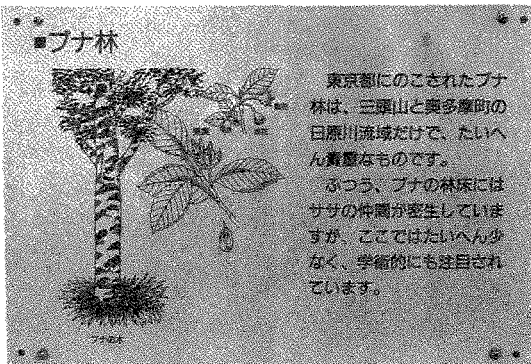 ■ブナ林
東京都にのこされたブナ
林は、三頭山と奥多摩町の
日原川流域だけで、たいへ
ん貴重なものです。
ふつう、ブナの林床には
ササの仲間が密生していま
すが、ここではたいへん少
なく、学術的にも注目され
ています。